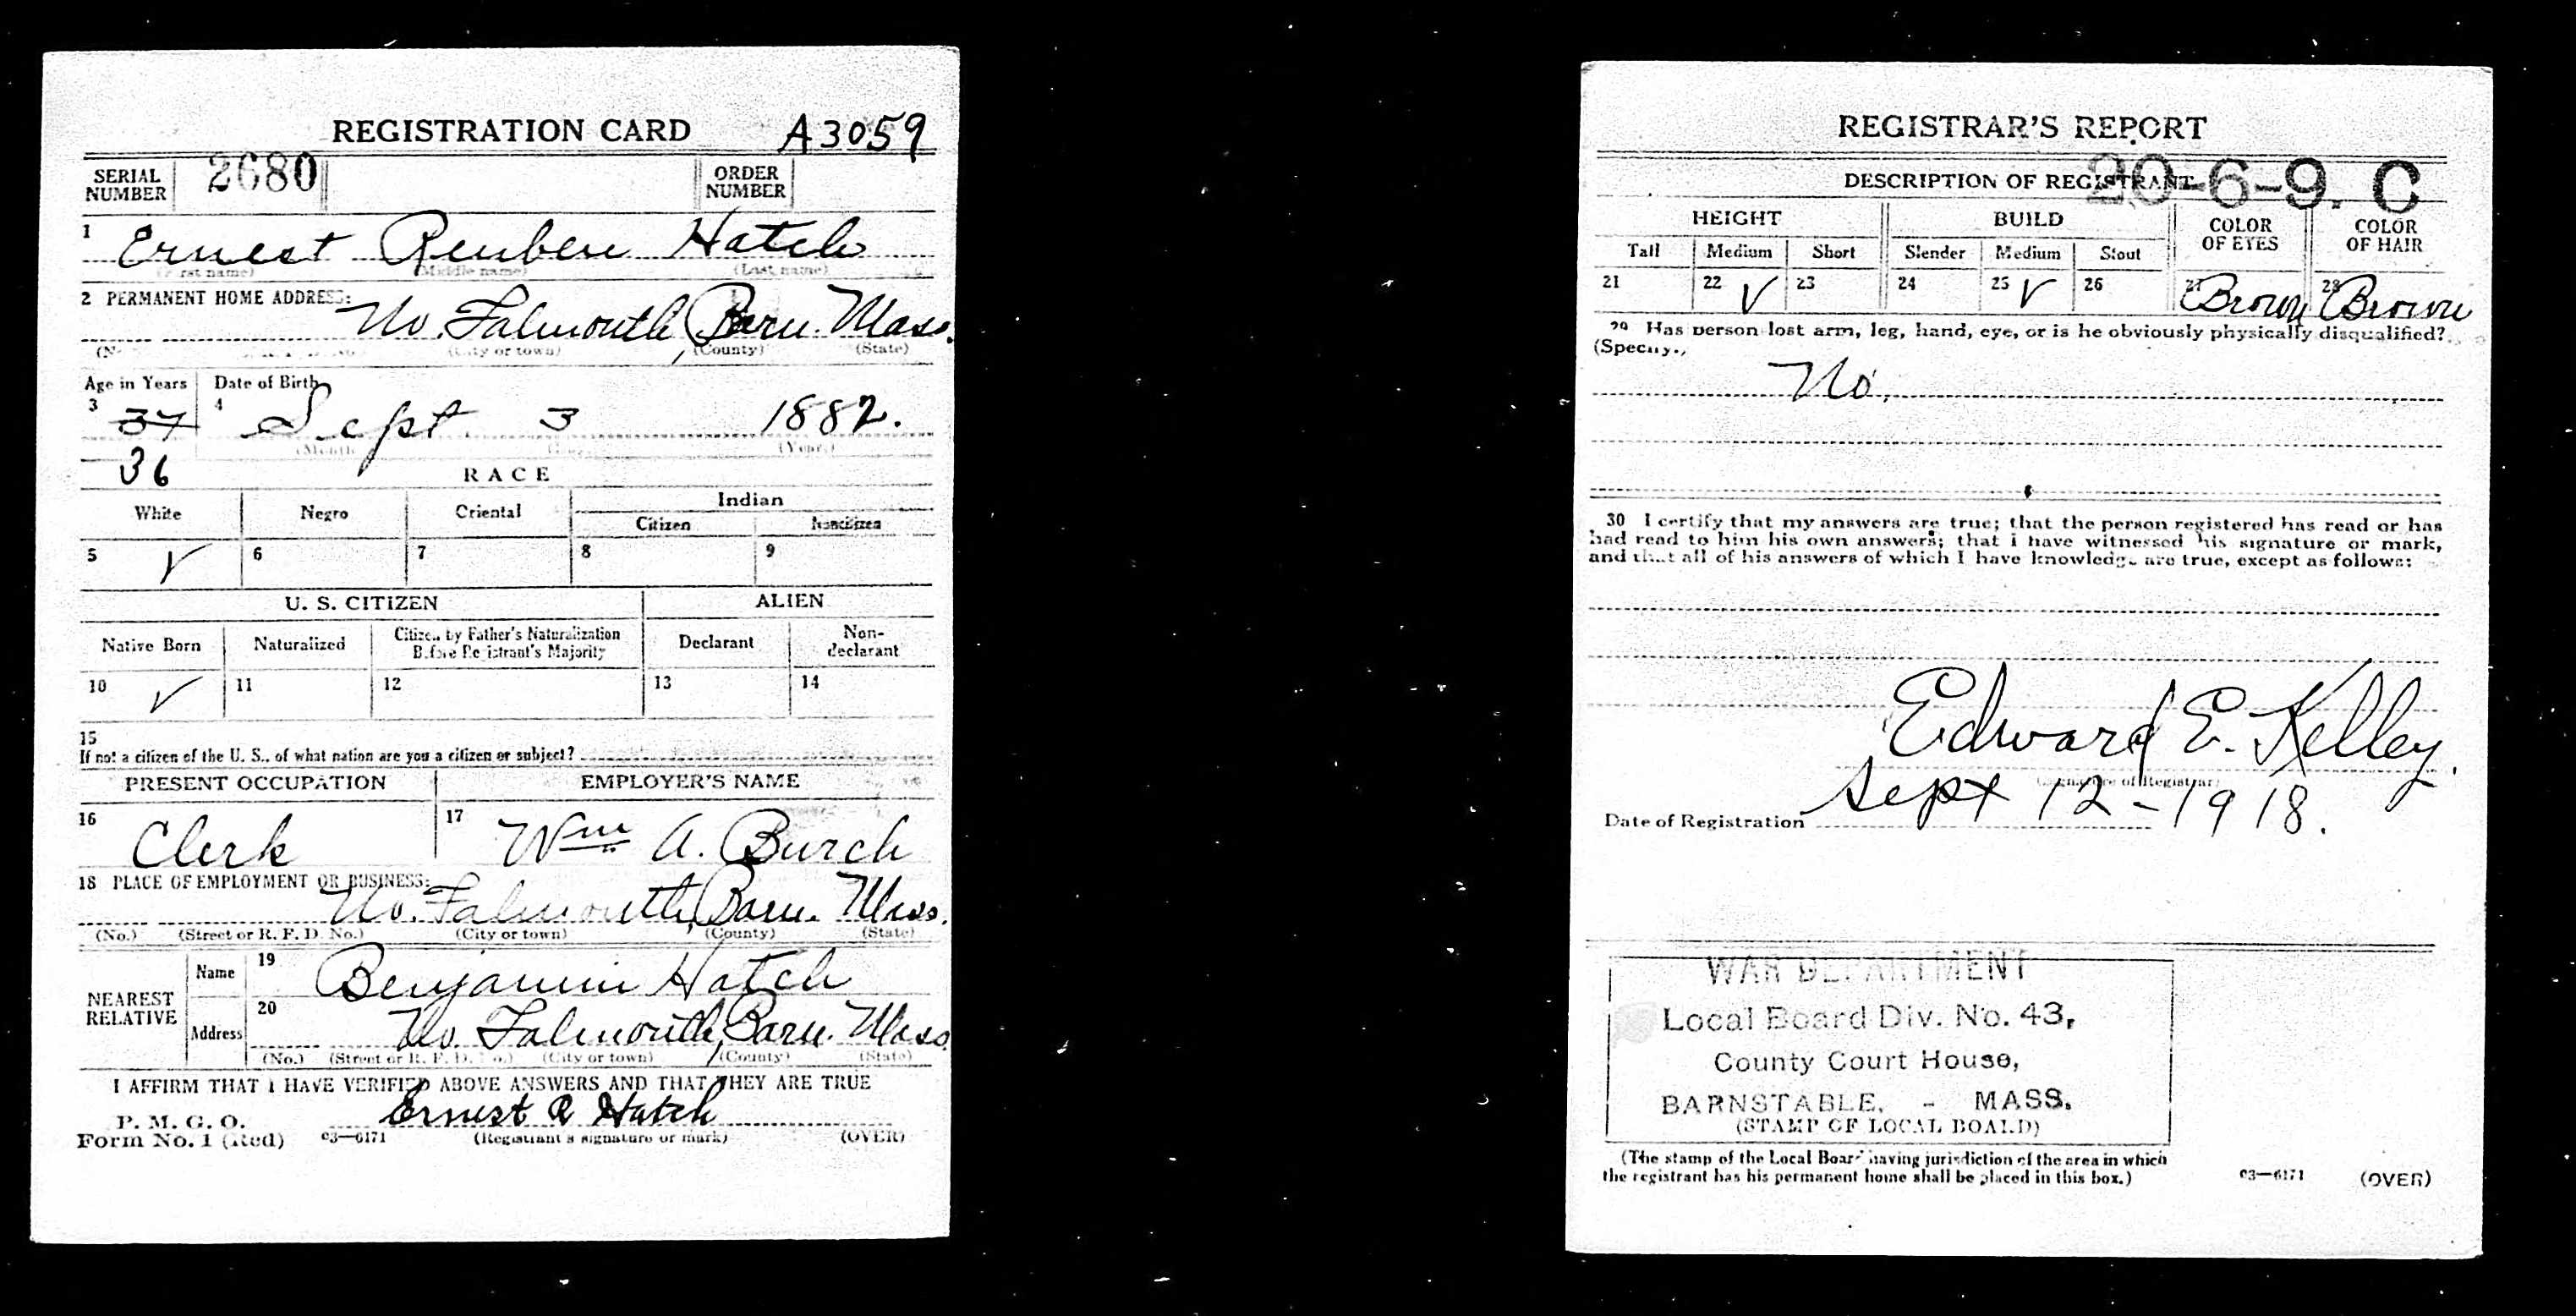 REGISTRATION CARD A3059
SERIAL NUMBER 2680 ORDER NUMBER
1 Ernest Reuben Hatch
(First name) (Middle name) (Last name)
2 PERMANENT HOME ADDRESS:
No. Falmouth, Barn. Mass.
(City or town) (County) (State)
Age in Years Date of Birth
3 37 4 Sept 3 1882.
(Month) (Year)
36
RACE
White Negro Oriental Indian
Citizen Noncitizen
5 ✓ 6 7 8 9
U. S. CITIZEN ALIEN
Native Born Naturalized Citizen by Father's Naturalization Before Registrant's Majority Declarant Non-declarant
10 ✓ 11 12 13 14
15
If not a citizen of the U. S., of what nation are you a citizen or subject?
PRESENT OCCUPATION EMPLOYER'S NAME
16 Clerk 17 Wm A. Burch
18 PLACE OF EMPLOYMENT OR BUSINESS:
No. Falmouth, Barn. Mass.
(No.) (Street or R. F. D. No.) (City or town) (County) (State)
NEAREST RELATIVE
Name 19 Benjamin Hatch
Address 20 No. Falmouth, Barn. Mass
(No.) (Street or R. F. D. No.) (City or town) (County) (State)
I AFFIRM THAT I HAVE VERIFIED ABOVE ANSWERS AND THAT THEY ARE TRUE
P. M. G. O.
Form No. 1 (Red) 03—6171 Ernest R Hatch
(Registrant's signature or mark) (OVER)
REGISTRAR'S REPORT
20-6-9. C
DESCRIPTION OF REGISTRANT
HEIGHT BUILD COLOR OF EYES COLOR OF HAIR
Tall Medium Short Slender Medium Stout
21 22 ✓ 23 24 25 ✓ 26 27 Brown 28 Brown
29 Has person lost arm, leg, hand, eye, or is he obviously physically disqualified?
(Specify.)
No.
30 I certify that my answers are true; that the person registered has read or has
had read to him his own answers; that I have witnessed his signature or mark,
and that all of his answers of which I have knowledge are true, except as follows:
Edward E. Kelley.
(Signature of Registrar)
Date of Registration Sept 12-1918.
WAR DEPARTMENT
Local Board Div. No. 43,
County Court House,
BARNSTABLE, - MASS.
(STAMP OF LOCAL BOARD)
(The stamp of the Local Board having jurisdiction of the area in which
the registrant has his permanent home shall be placed in this box.)
03—6171 (OVER)